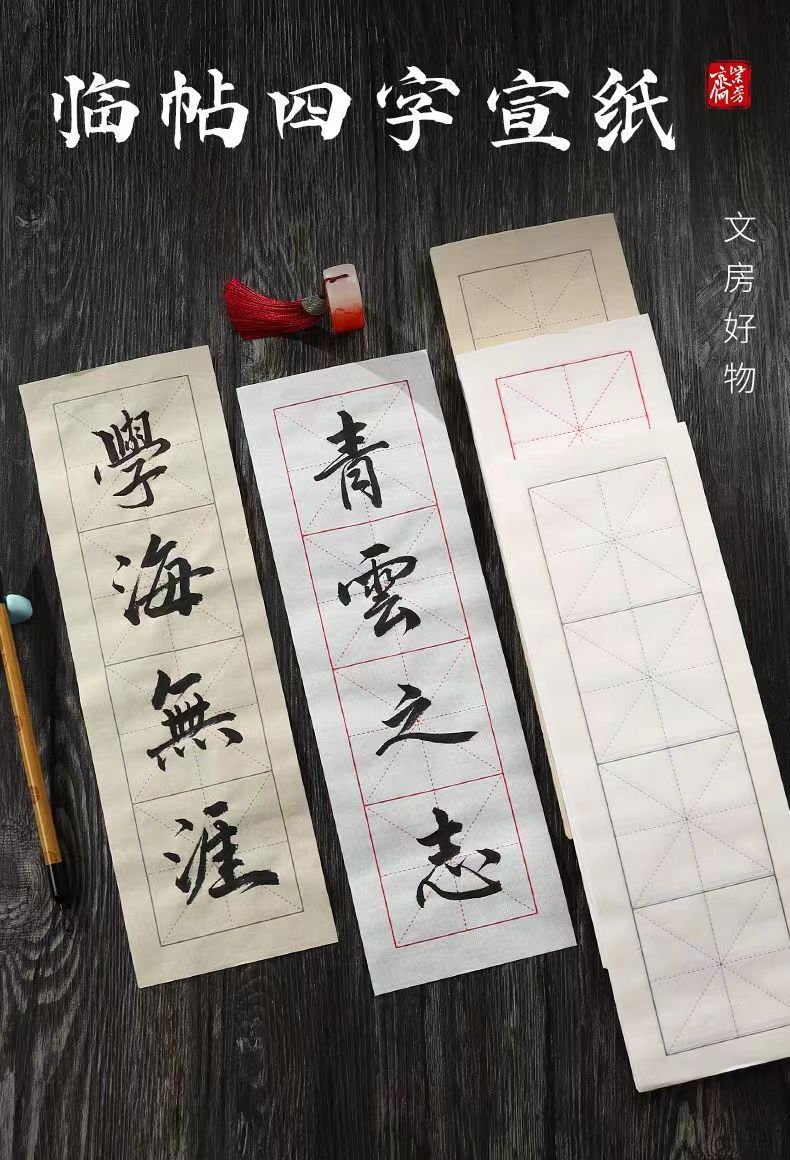 临帖四字宣纸
文房好物
學海無涯
青雲之志